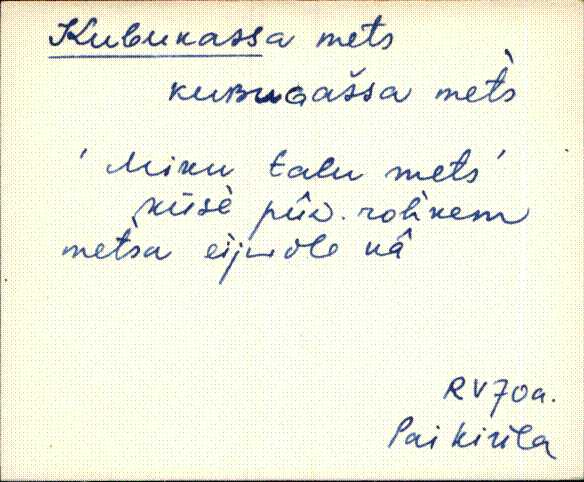 Kubukassa mets
kuBuGašsa met̀s
'Miku talu mets'
kūsè pûi̬. rohkem
metsa eij ole kâ
RV70a.
Pai kirila